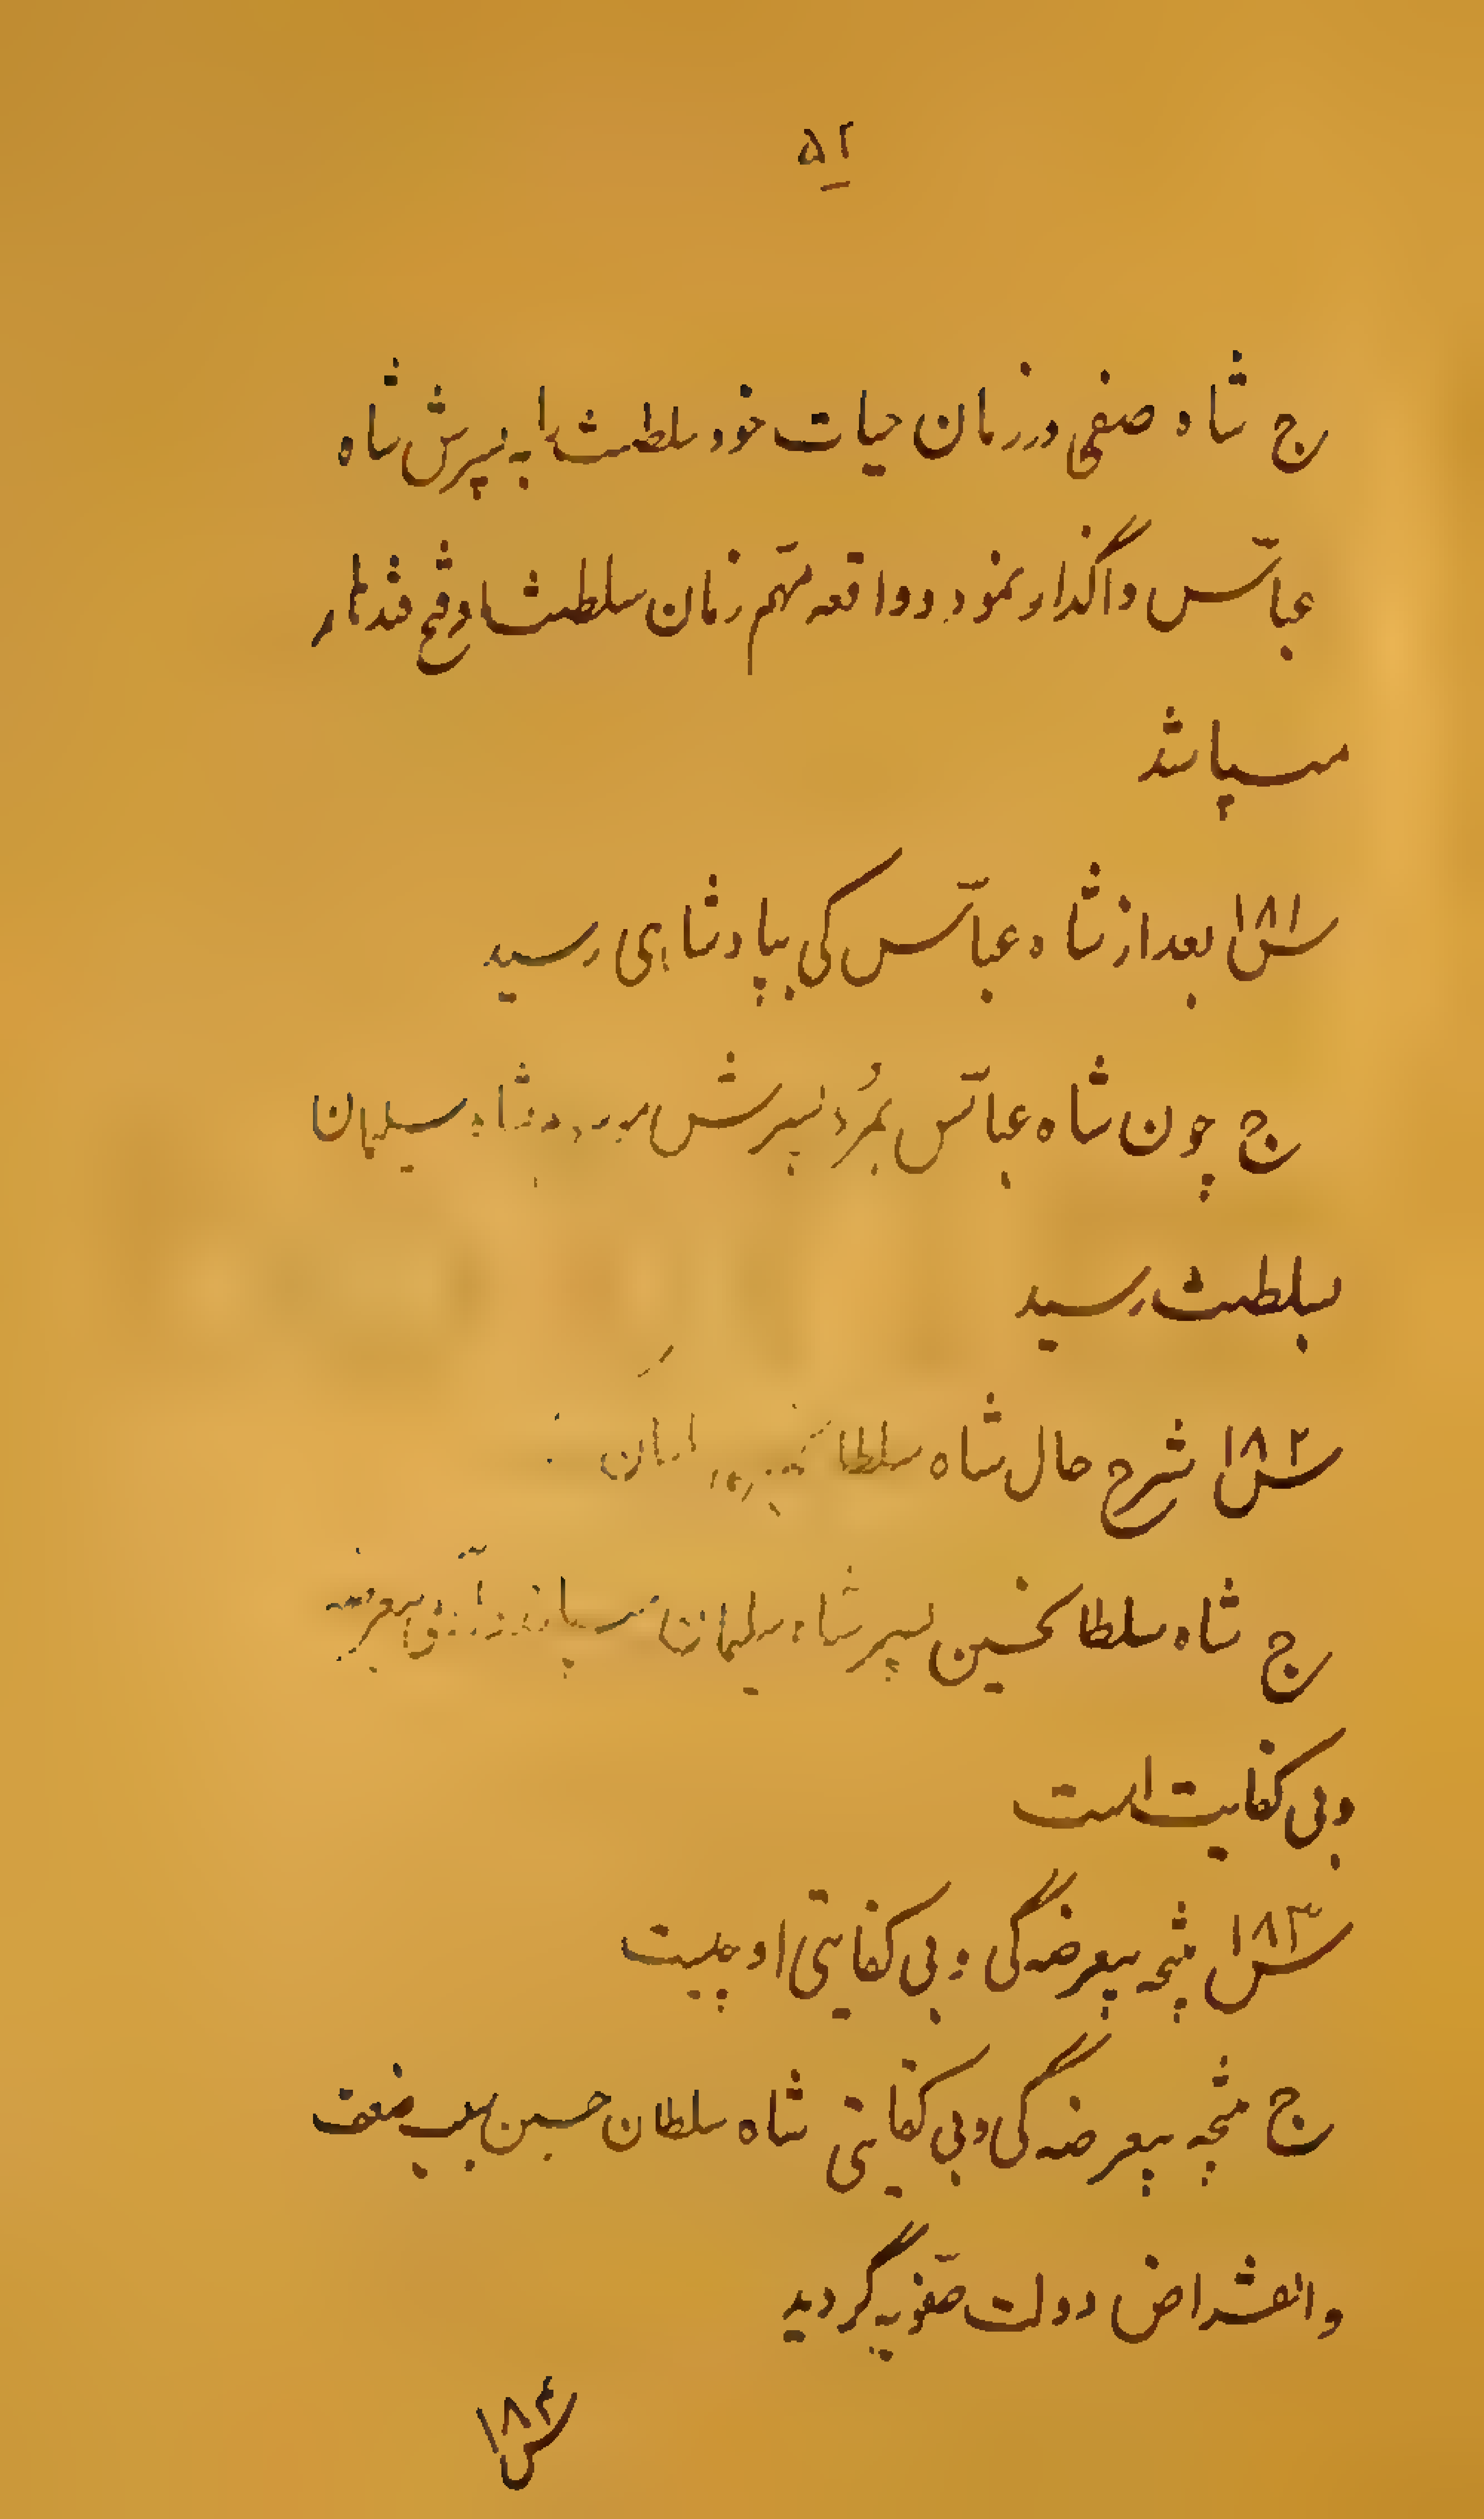 ۵۲
ج شاه صفی در زمان حیات خود سلطنت را به پسرش شاه
عباّس واگذار نمود و واقعه مهّم زمان سلطنت او فتح قندهار
میباشد
س۱۸۱ بعد از شاه عباّس کی بپادشاهی رسید
ج چون شاه عباّس بمُرد پسرش شاه سلیمان
بسلطنت رسید
س۱۸۲ شرح حال شاه سلطا
ج شاه سلطانحسین پسر شاه سلیمان بیعرضه
و بی کفایت است
س۱۸۳ نتیجه بیعرضه گی و بی کفایتی او چیست
ج نتیجه بیعرضه گی و بی کفایتی شاه سلطان حسین سبب ضعف
و انقراض دولت صفّویه گردید
س۱۸۴